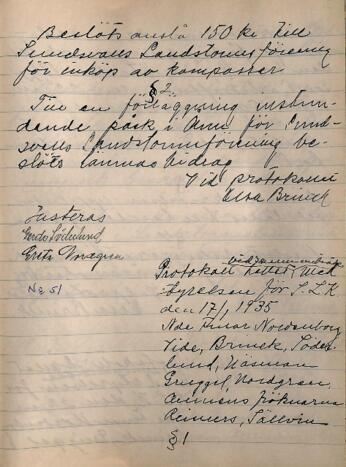 Beslöts anslå 150 kr till
Sundsvalls Landstormsförening
för inköp av kompasser
§ 2.
Till en förläggning instun-
dande påsk i Åre för Sund-
svalls Landstormsförening be-
slöts lämnas bidrag
Vid protokollet
Elsa Brinck
Justeras
Gerda Söderlund
Greta
No 51
vid sammanträde
Protokoll hållet med
styrelsen för S.L.K
den 17/1 1935
Nde fruar Nordenborg
Vide, Brinck, Söder-
lund, Näsman
Nordgren
fröknarna
Reimers, Sällvin
§ 1